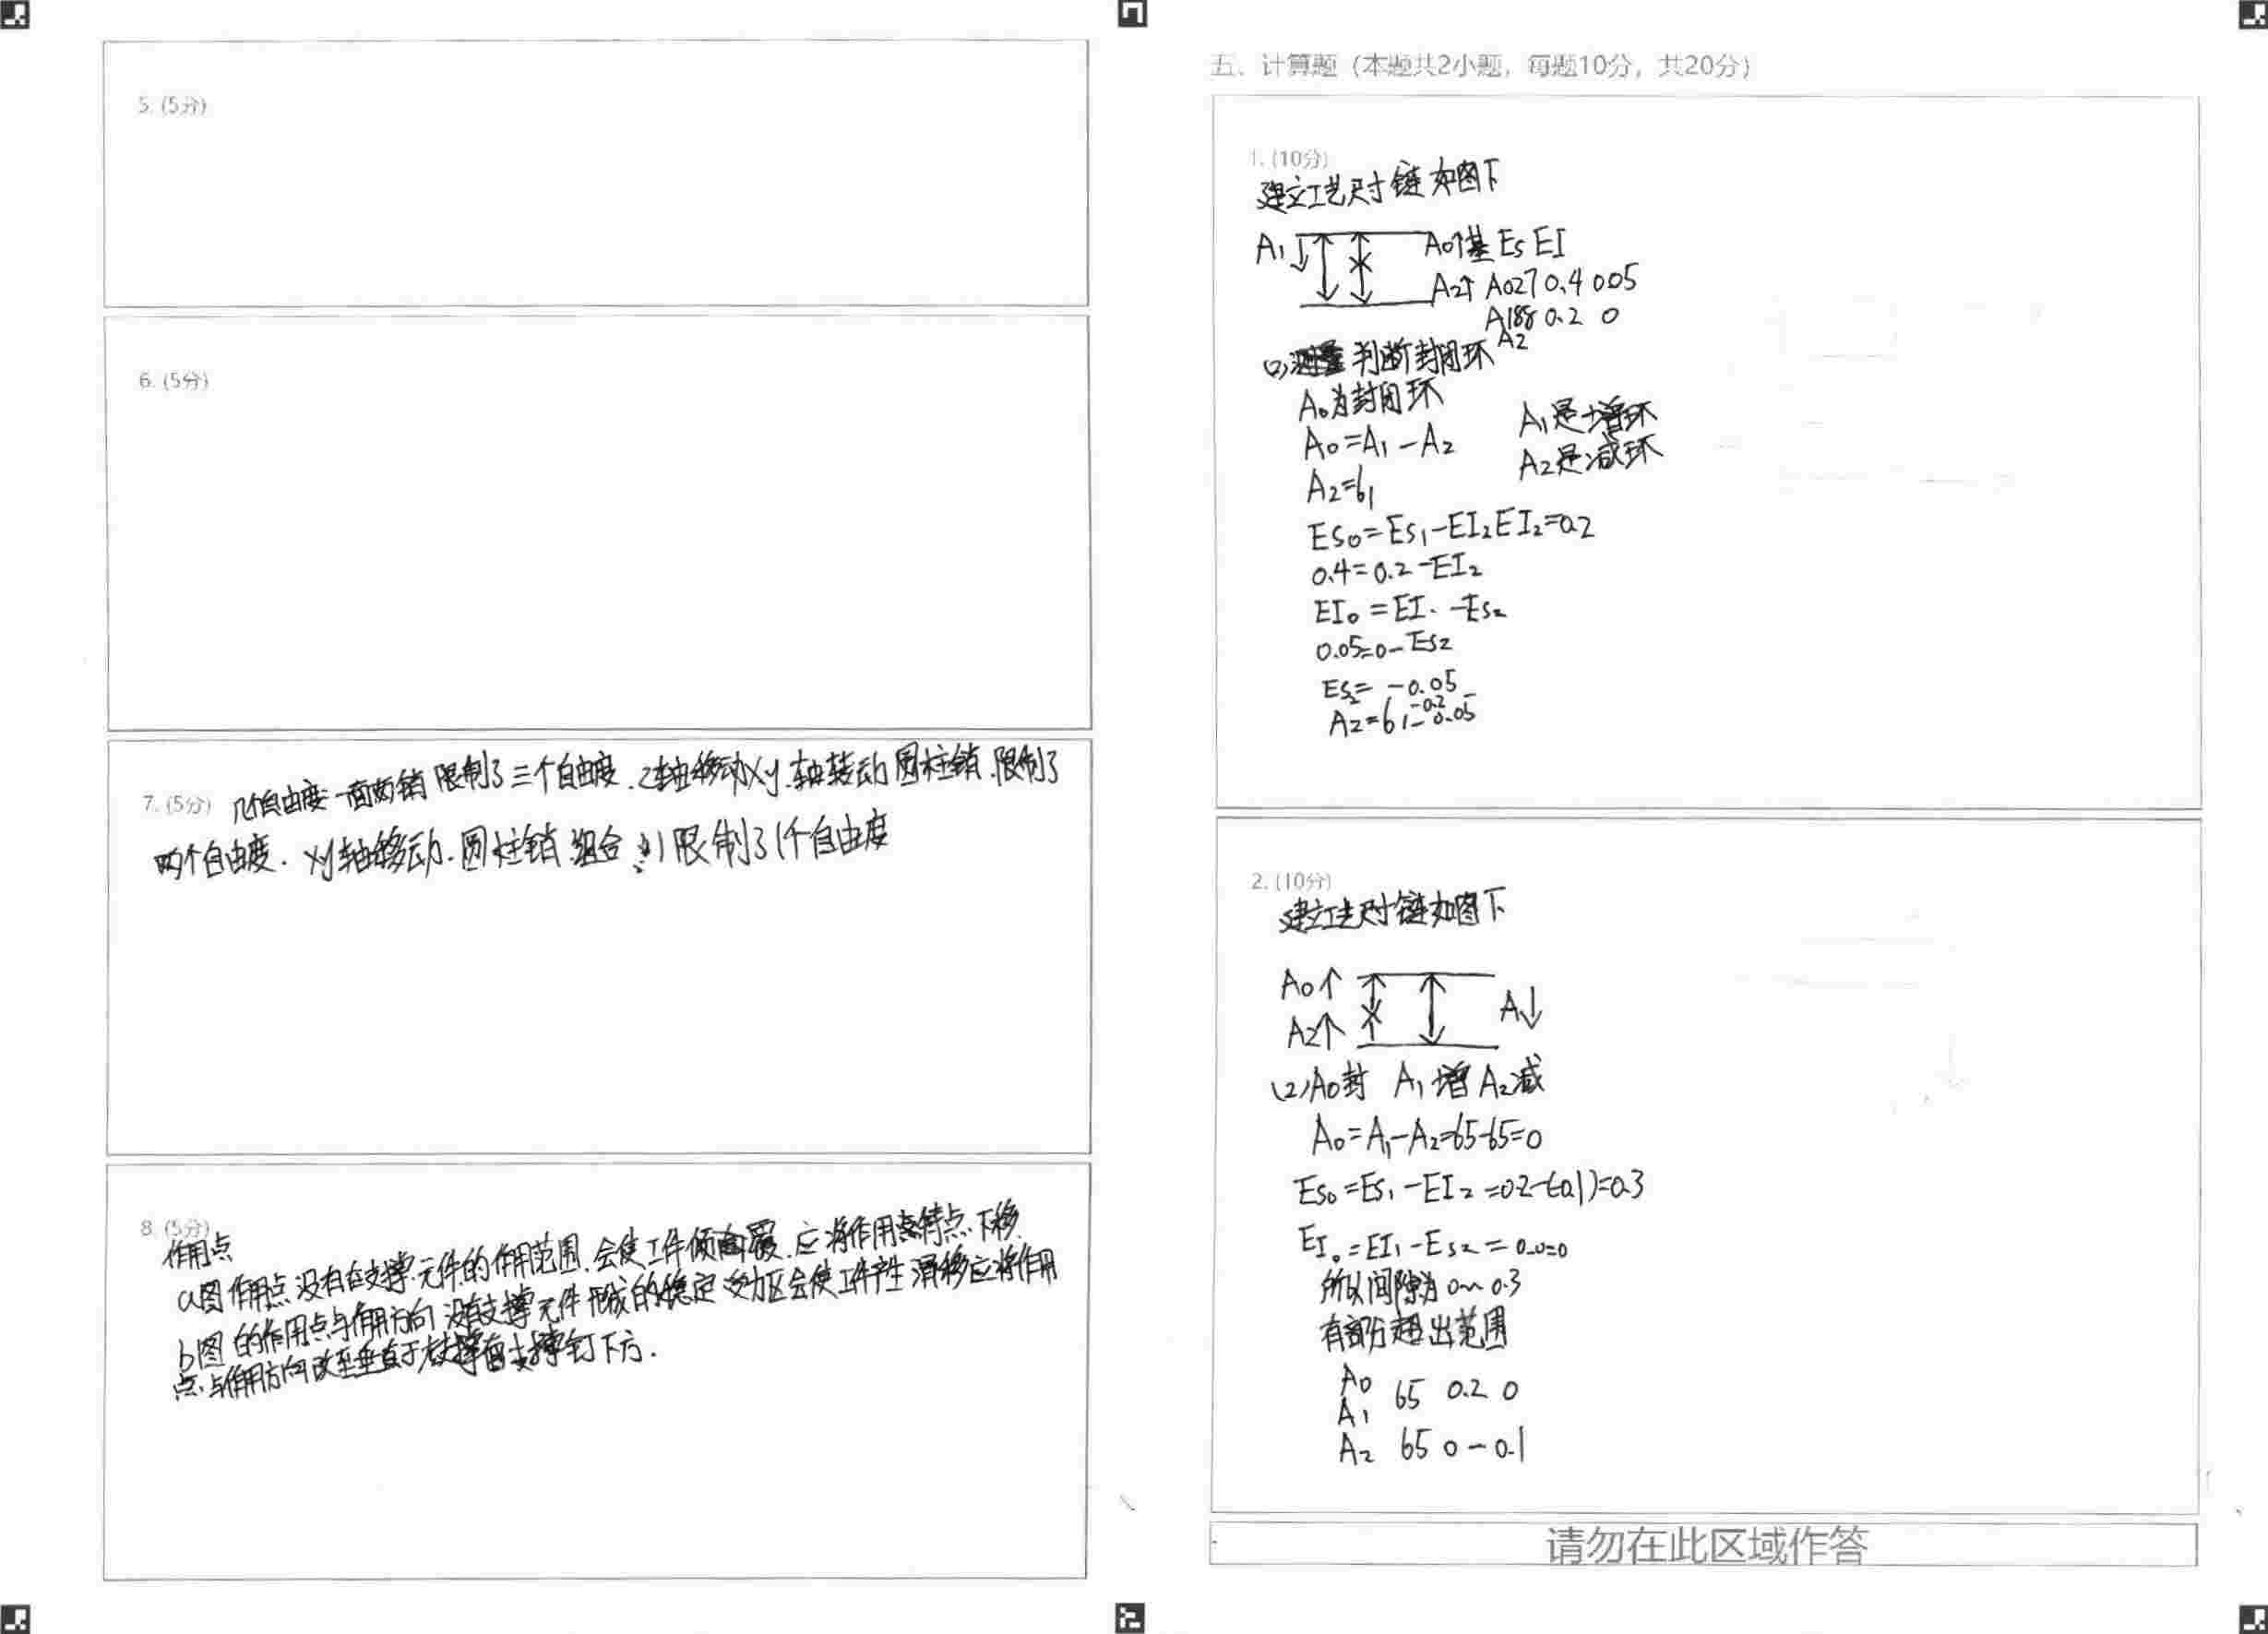 5. (5分)
6. (5分)
7. (5分) 几个自由度 一面两销 限制了三个自由度. Z轴移动 xy.轴转动 圆柱销.限制了
两个自由度. xy轴移动. 圆柱销.组合 限制了1个自由度
8. (5分)
作用点
a图作用点没有在支撑.元件的作用范围.会使工件倾覆.应将作用点下移.
b图的作用点与作用方向没在支撑元件形成的稳定受力区会使工件产生滑移应将作用
点.与作用方向改至垂直于支撑钉下方.
五、计算题（本题共2小题，每题10分，共20分）
1. (10分)
建立工艺尺寸链如图下
A1
A0↑ 基 Es EI
A2↑ A0 27 0.4 0.05
A1 88 0.2 0
A2
(2) 判断封闭环
A0为封闭环
A1是增环
A0=A1-A2
A2是减环
A2=61
ES0=Es1-EI2 EI2=0.2
0.4=0.2-EI2
EI0=EI.-Es2
0.05=0-Es2
Es2=-0.05
A2=61 -0.2 -0.05
2. (10分)
建立工艺尺寸链如图下
A0↑
A↓
A2↑
(2)A0封 A1增 A2减
A0=A1-A2=65-65=0
Es0=Es1-EI2=0.2-(-0.1)=0.3
EI0=EI1-Es2=0-0=0
所以间隙为0~0.3
有部分超出范围
A0
65 0.2 0
A1
A2 65 0 -0.1
请勿在此区域作答